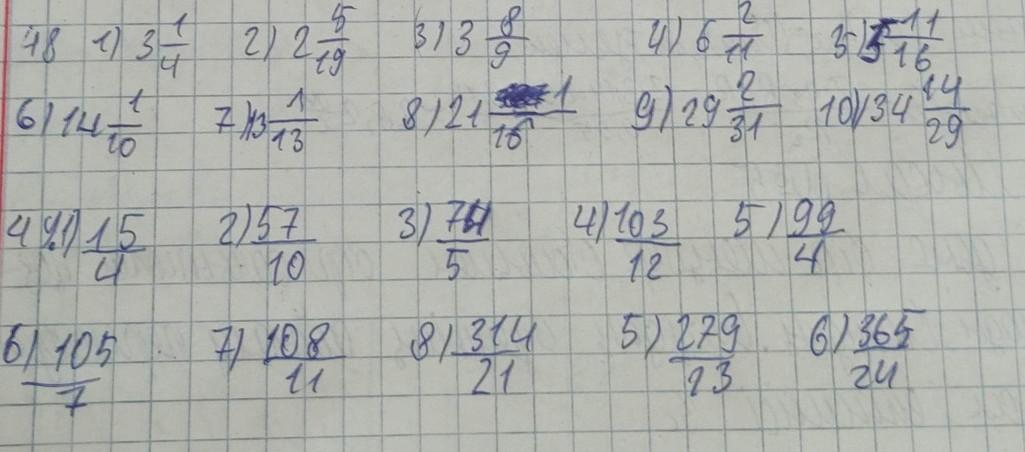 48 1) 3 1/4 2) 2 5/19 3) 3 8/9 4) 6 2/11 5) 5 11/16
6) 14 1/10 7) 13 1/13 8) 21 1/15 9) 29 2/31 10) 34 14/29
49 1) 15/4 2) 57/10 3) 74/5 4) 103/12 5) 99/4
6) 105/7 7) 108/11 8) 314/21 5) 279/23 6) 365/24